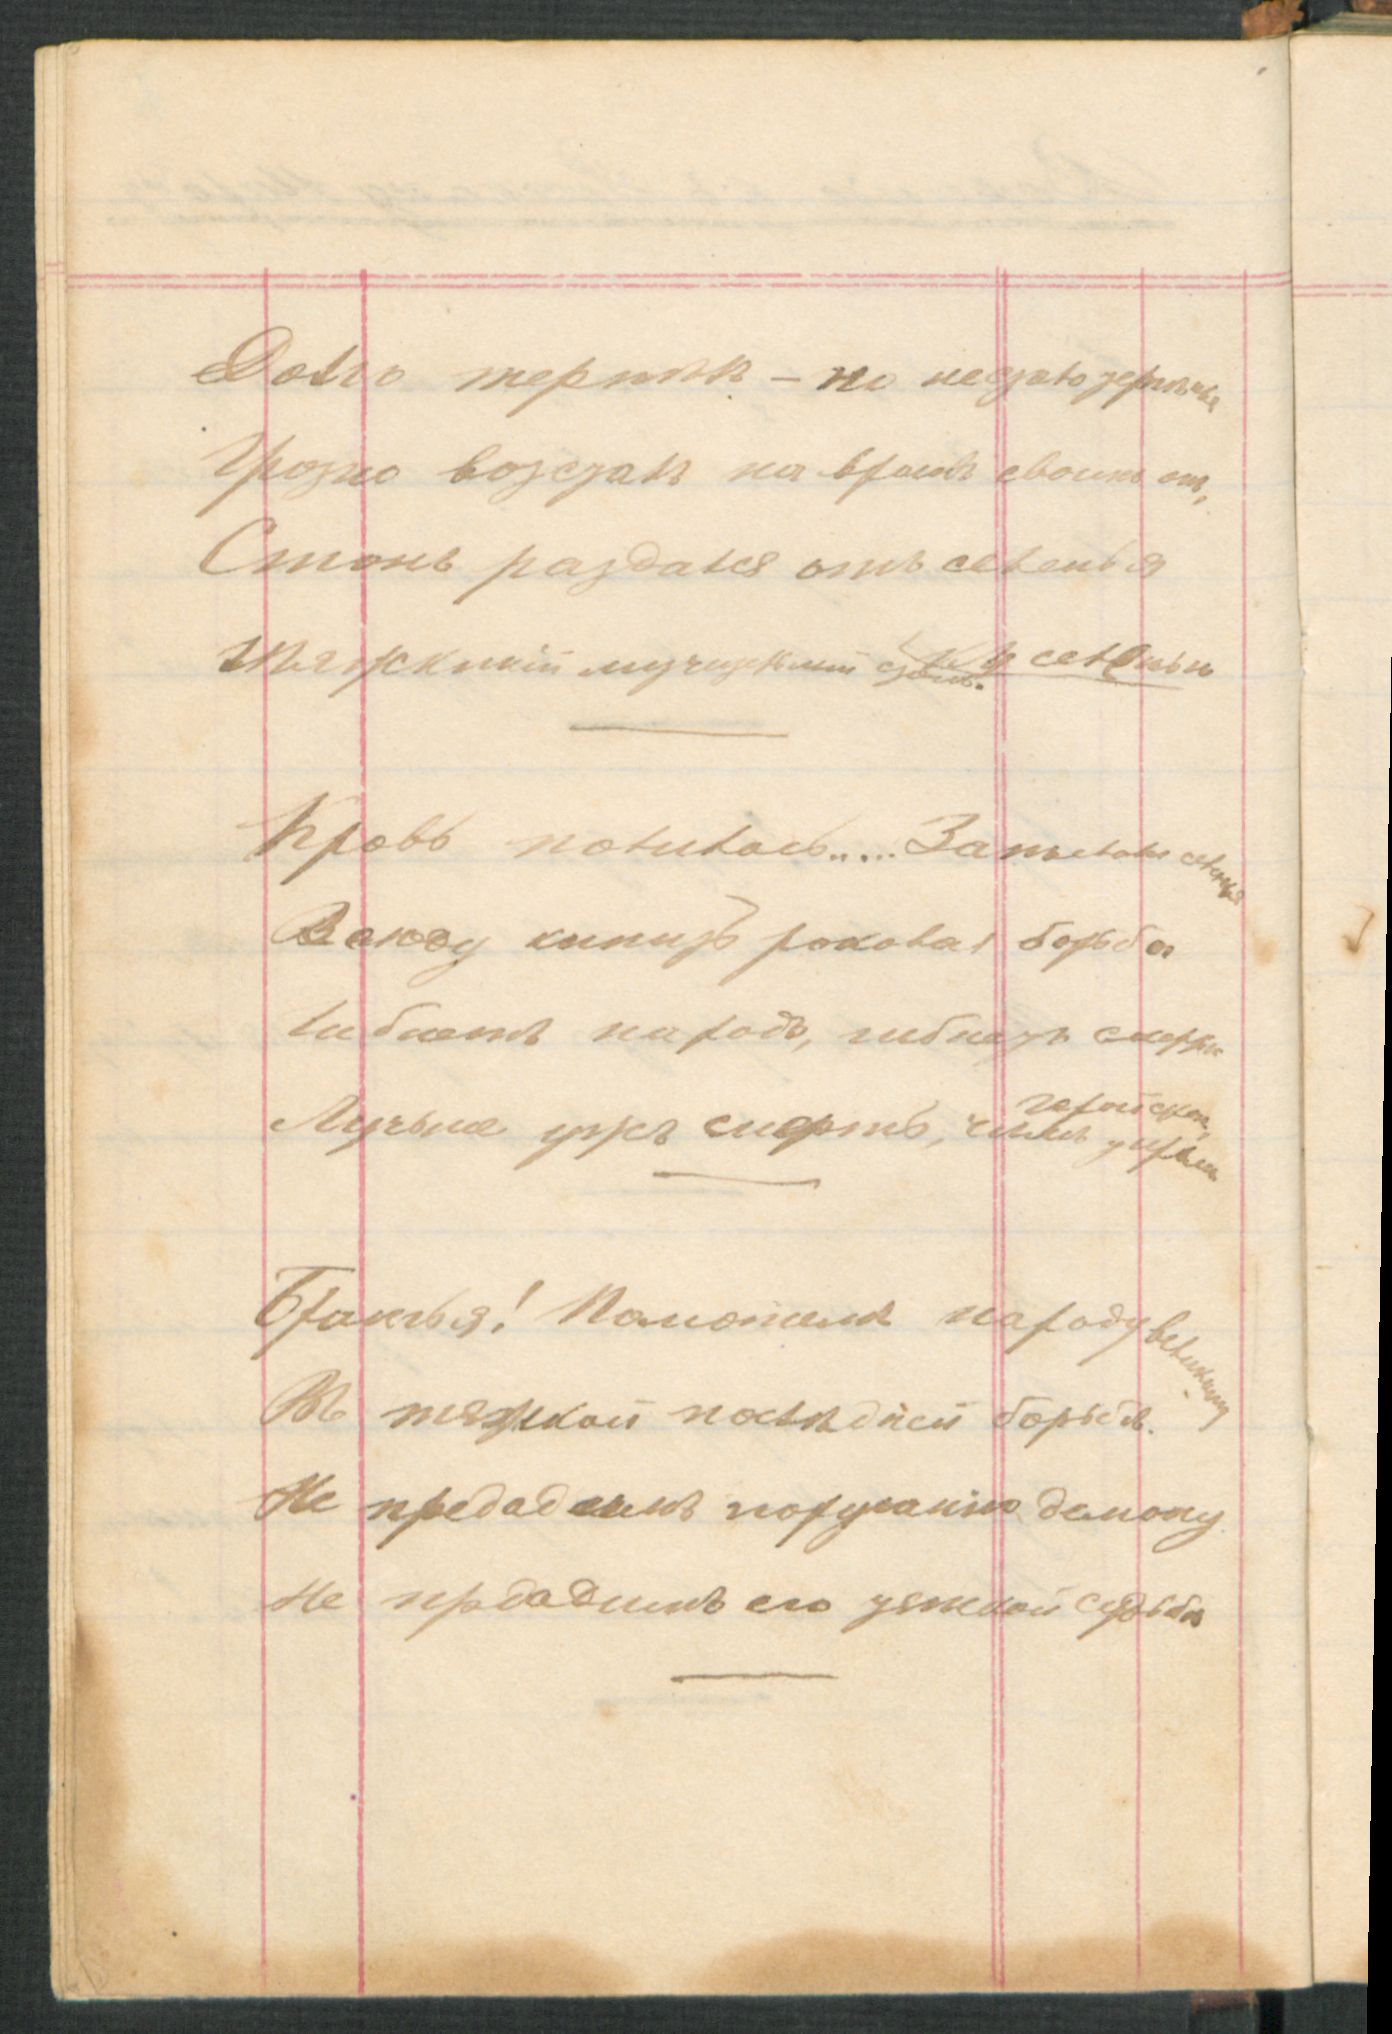 Долго терпѣлъ – но нестало терпѣнья
Грозно возсталъ на враговъ своихъ онъ,
Стонъ раздался отъ селенья
Тяжкiй мучительный стонъ. къ селенью
Кровь полилась..... Запылали селенья
Всюду кипитъ роковая борьба
Гибнетъ народъ, гибнетъ
Лучьше ужъ смерть, чѣмъ
Братья! Поможемъ народу великому
Въ тяжкой послѣдней борьбѣ.
Не предадимъ поруганію
Не прдадимъ его тяжкой судьбѣ